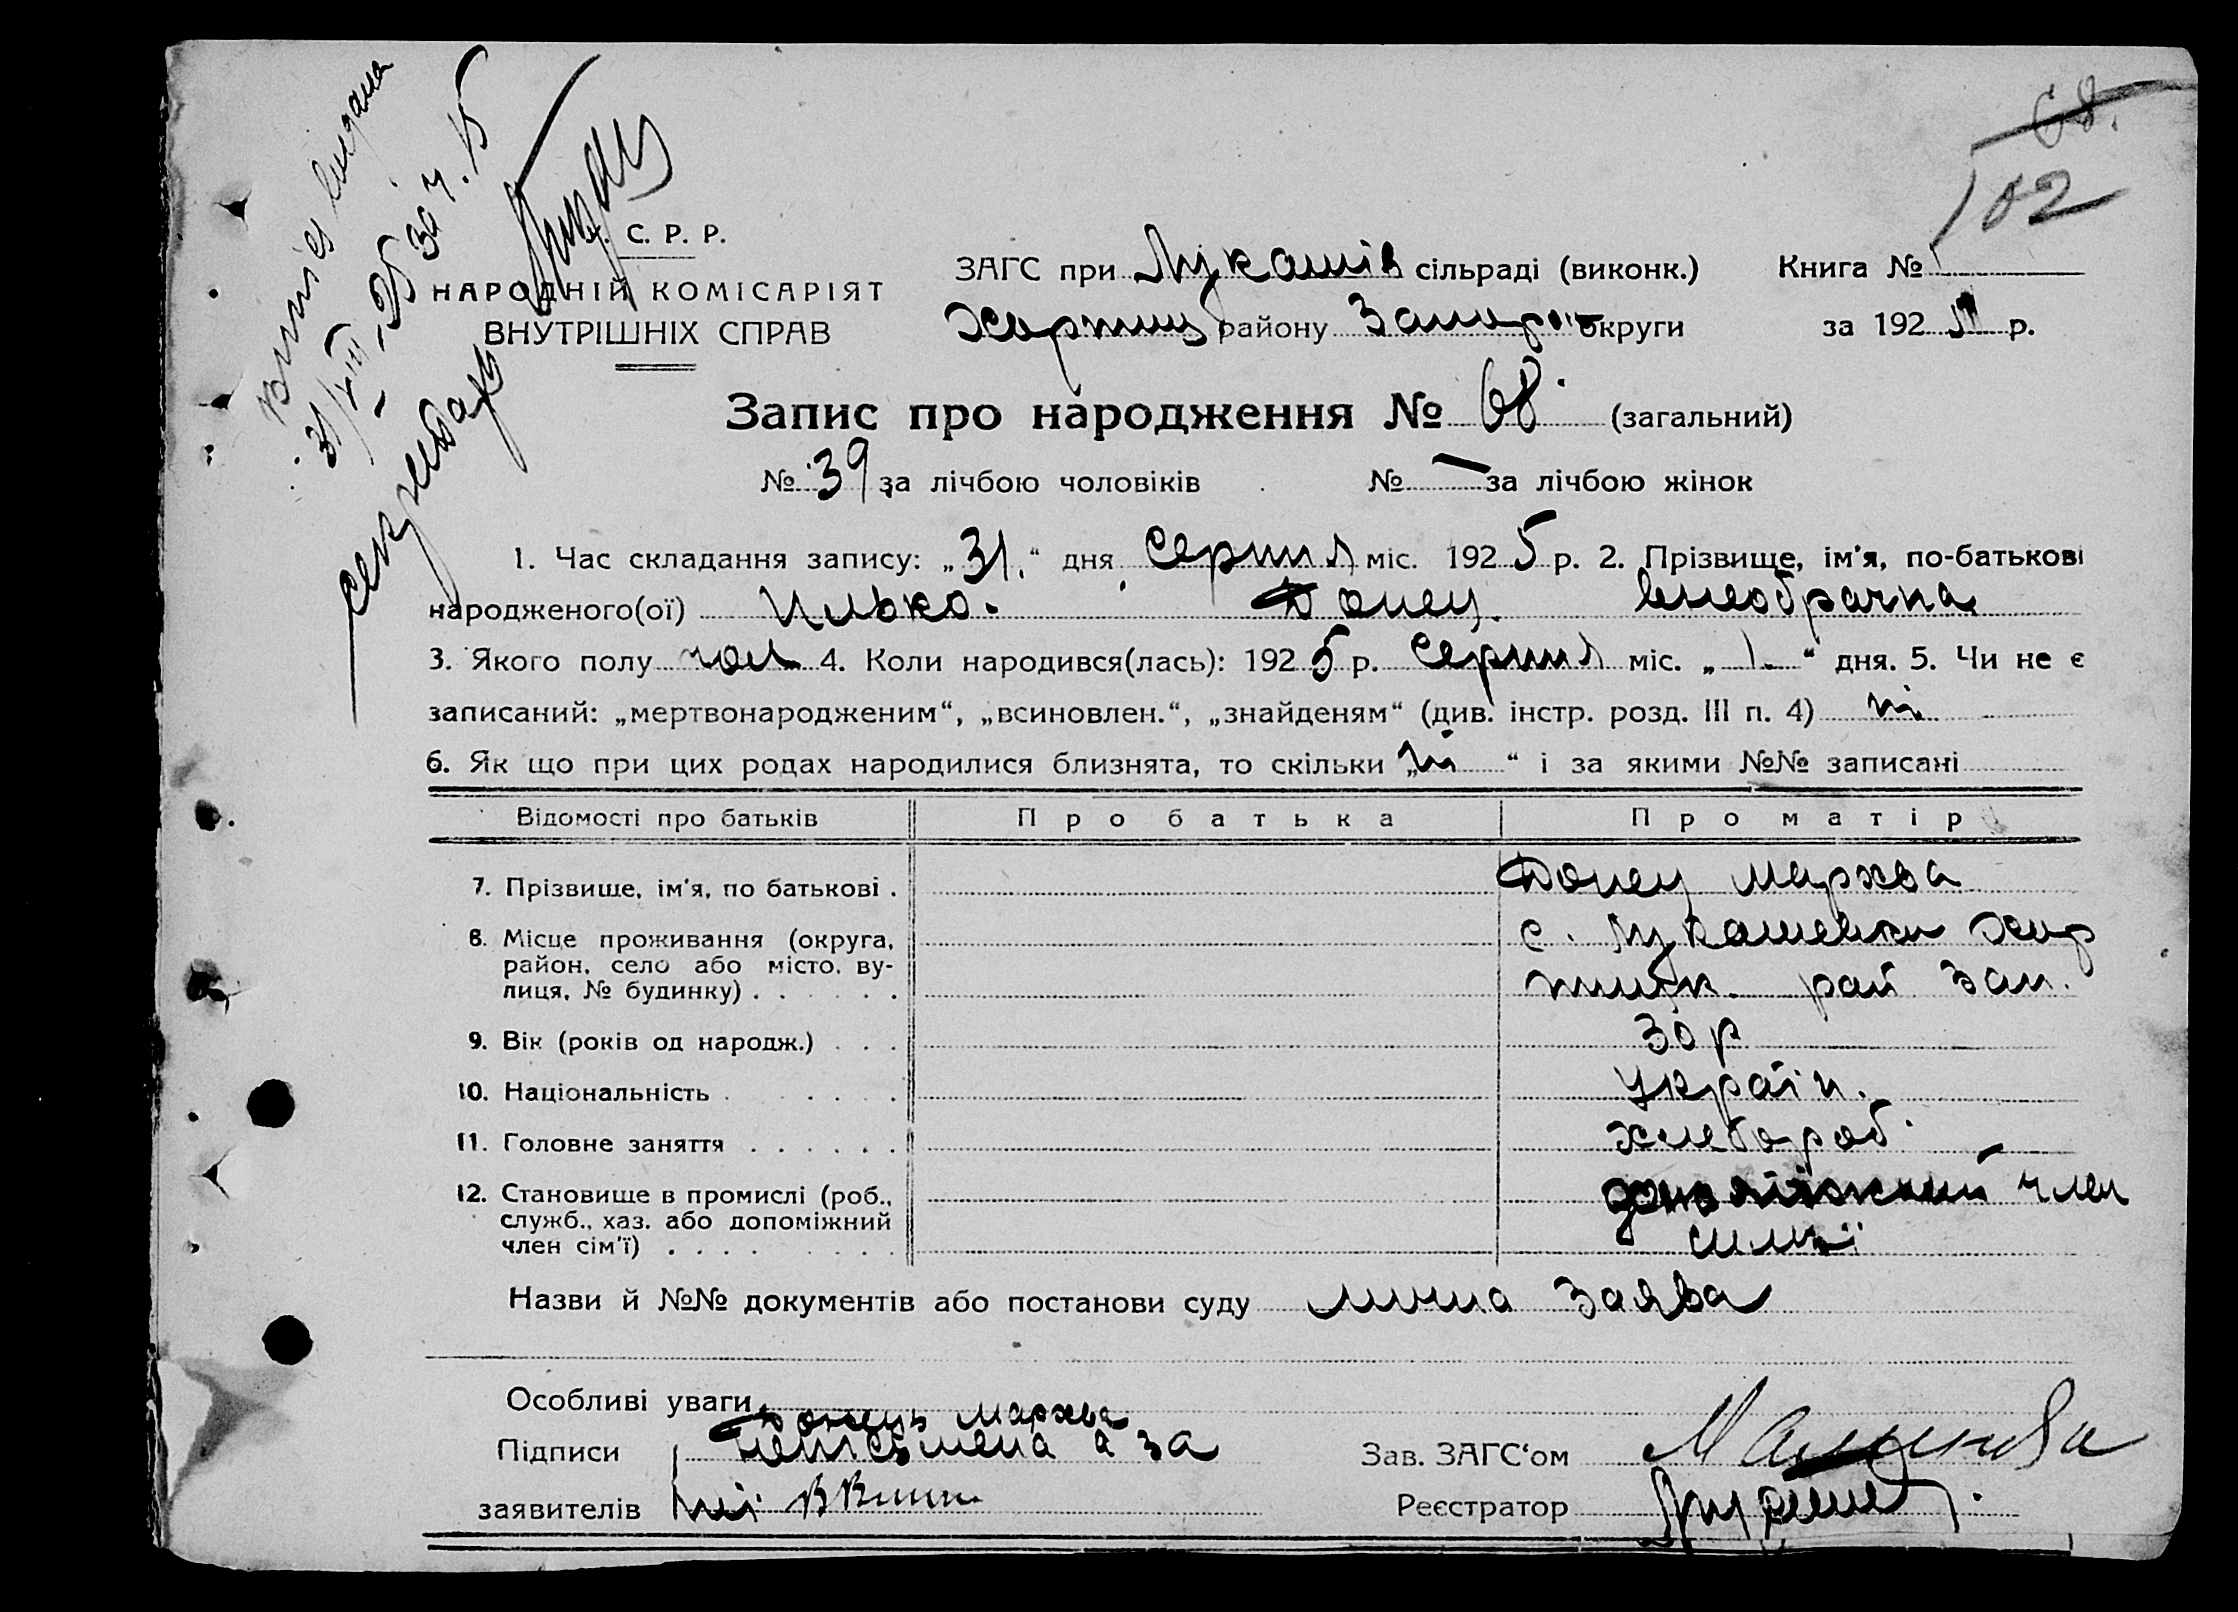 68.
102
Випис видана
31/VIII-25 за ч. 15
секретарь
С. Р. Р.
НАРОДНІЙ КОМІСАРІЯТ
ВНУТРІШНІХ СПРАВ
ЗАГС при Лукашів сільраді (виконк.) Книга №
Хортиц району Запоріз округи за 192 5 р.
Запис про народження № 68. (загальний)
№ 39 за лічбою чоловіків № — за лічбою жінок
1. Час складання запису: „31.“ дня Серпня міс. 192 5 р. 2. Прізвище, ім'я, по-батькові
народженого(ої) Илько. Донец. внеобрачна
3. Якого полу чол 4. Коли народився(лась): 192 5 р. Серпня міс. „ 1. “ дня. 5. Чи не є
записаний: „мертвонародженим“, „всиновлен.“, „знайденям“ (див. інстр. розд. III п. 4) ні.
6. Як що при цих родах народилися близнята, то скільки „ні “ і за якими №№ записані
Відомості про батьків Про батька Про матір
7. Прізвище, ім'я, по батькові . Донец Мархва
8. Місце проживання (округа, с. Лукашевки Хор
район, село або місто, ву-
лиця, № будинку) . . . . . . тицк. рай Зап.
9. Вік (років од народж.) . . . 30 р
10. Національність . . . . . . україн.
11. Головне заняття . . . . . . хлебороб.
12. Становище в промислі (роб., допоміжний член
служб., хаз. або допоміжний
член сім'ї) . . . . . . . . сімї
Назви й №№ документів або постанови суду лична заява
Особливі уваги
Донець Мархва
Підписи неписьмена а за Зав. ЗАГС'ом
заявителів неї Реєстратор